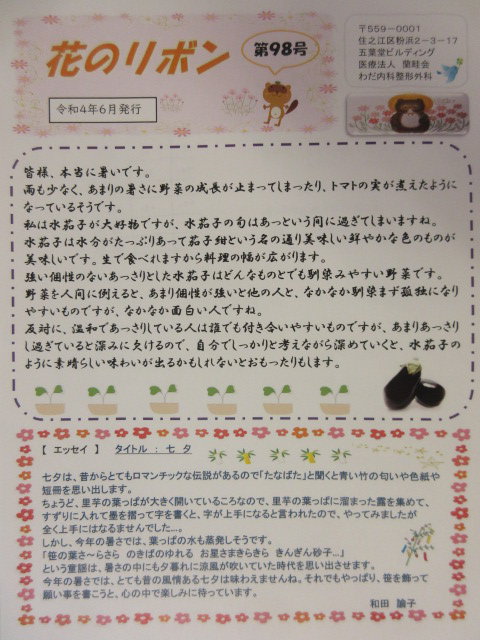 花のリボン
第98号
〒559-0001
住之江区粉浜2-3-17
五葉堂ビルディング
医療法人 蘭畦会
わだ内科整形外科
令和4年6月発行
皆様、本当に暑いです。
雨も少なく、あまりの暑さに野菜の成長が止まってしまったり、トマトの実が煮えたように
なっているそうです。
私は水茄子が大好物ですが、水茄子の旬はあっという間に過ぎてしまいますね。
水茄子は水分がたっぷりあって茄子紺という名の通り美味しい鮮やかな色のものが
美味しいです。生で食べれますから料理の幅が広がります。
強い個性のないあっさりとした水茄子はどんなものとでも馴染みやすい野菜です。
野菜を人間に例えると、あまり個性が強いと他の人と、なかなか馴染まず孤独になり
やすいものですが、なかなか面白い人ですね。
反対に、温和であっさりしている人は誰でも付き合いやすいものですが、あまりあっさり
し過ぎていると深みに欠けるので、自分でしっかりと考えながら深めていくと、水茄子の
ように素晴らしい味わいが出るかもしれないとおもったりもします。
【 エッセイ 】 タイトル : 七 夕
七夕は、昔からとてもロマンチックな伝説があるので「たなばた」と聞くと青い竹の匂いや色紙や
短冊を思い出します。
ちょうど、里芋の葉っぱが大きく開いているころなので、里芋の葉っぱに溜まった露を集めて、
すずりに入れて墨を摺って字を書くと、字が上手になると言われたので、やってみましたが
全く上手にはなるませんでした…。
しかし、今年の暑さでは、葉っぱの水も蒸発しそうです。
「笹の葉さ～らさら のきばのゆれる お星さまきらきら きんぎん砂子…」
という童謡は、暑さの中にも夕暮れに涼風が吹いていた時代を思い出させます。
今年の暑さでは、とても昔の風情ある七夕は味わえませんね。それでもやっぱり、笹を飾って
願い事を書こうと、心の中で楽しみに待っています。
和田 諭子